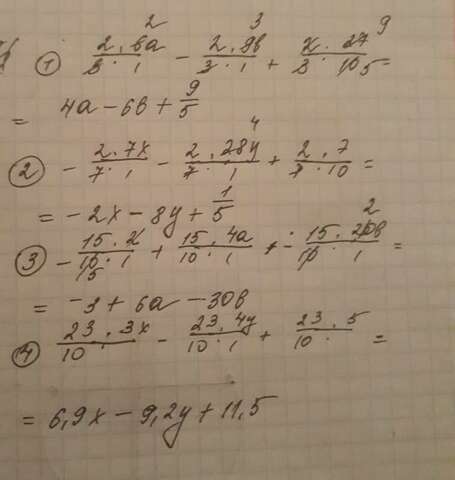 ① 2·6a/3·1 - 2·9b/3·1 + 2·27/3·10 =
= 4a - 6b + 9/5
② - 2·7x/7·1 - 2·28y/7·1 + 2·7/7·10 =
= -2x - 8y + 1/5
③ - 15·2/10·1 + 15·4a/10·1 - 15·20b/10·1 =
= -3 + 6a - 30b
④ 23·3x/10 - 23·4y/10·1 + 23·5/10· =
= 6,9x - 9,2y + 11,5